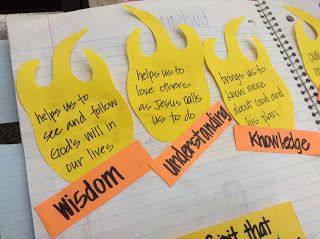 helps us to
see and follow
God's will in
our lives
Wisdom
helps us to
love others
as Jesus calls
us to do
Understanding
brings us to
know more
about God and
his plan
Knowledge
Spirit that